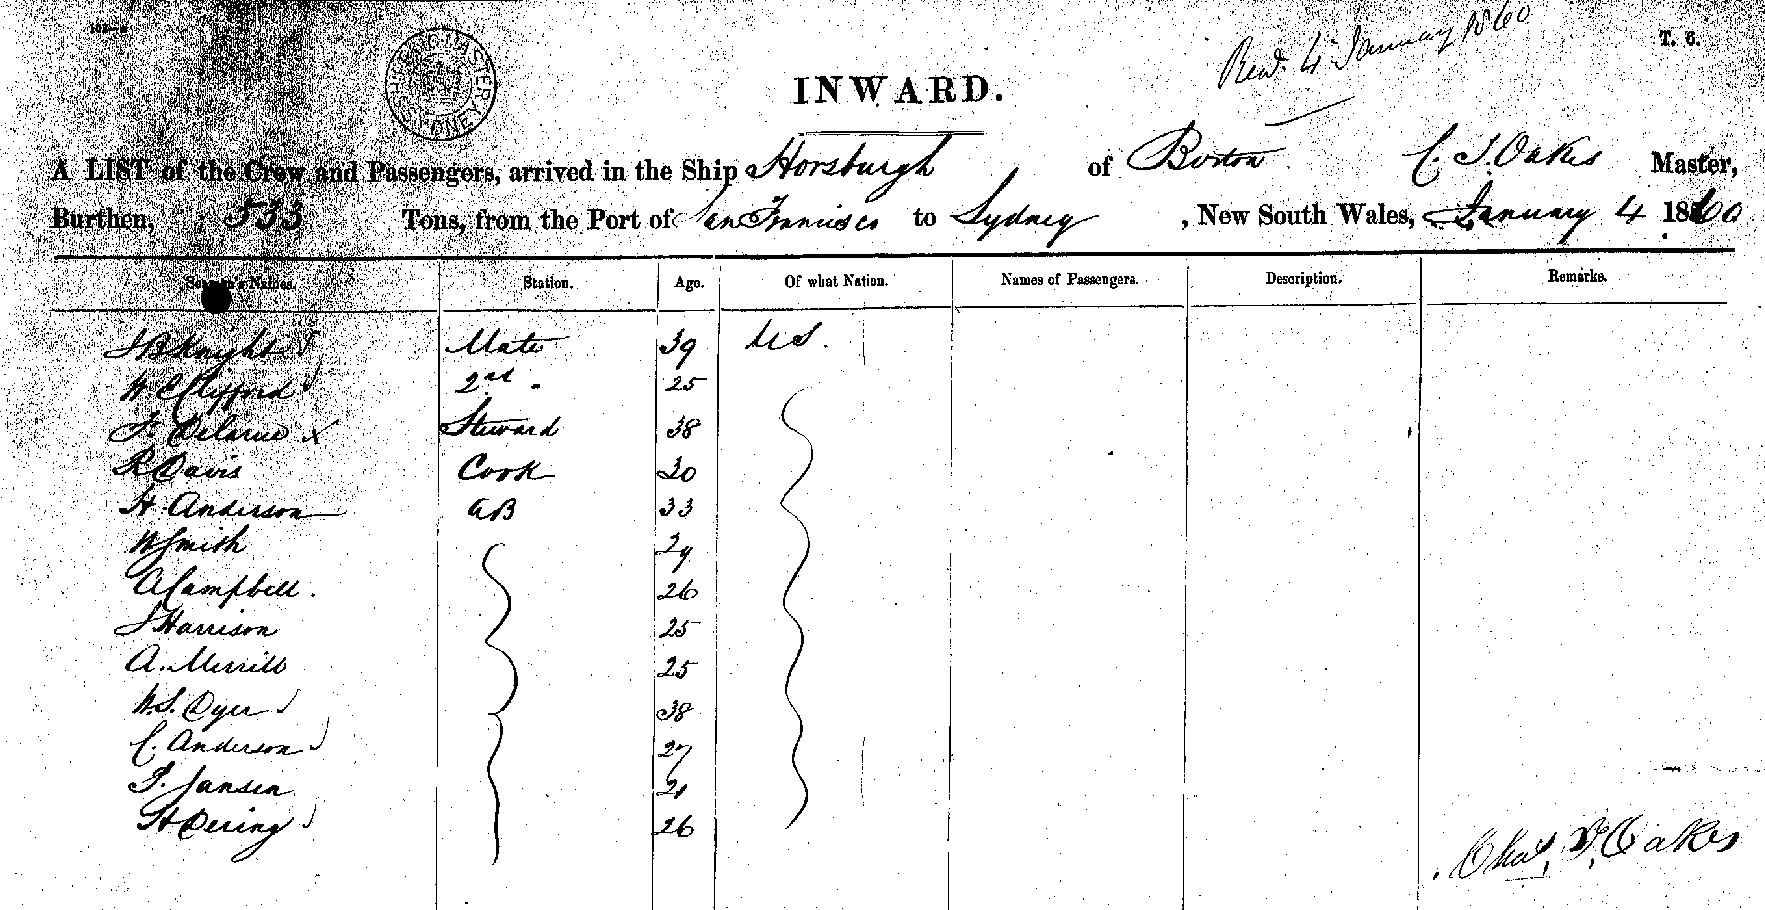 Recd. 4 January 1860
T. 6.
INWARD.
A LIST of the Crew and Passengers, arrived in the Ship Horsburgh of Boston C. T. Oakes Master,
Burthen, 533 Tons, from the Port of San Francisco to Sydney, New South Wales, January 4 1860
Seamen's Names. Station. Age. Of what Nation. Names of Passengers. Description. Remarks.
J B Knight Mate 39 U S.
W. E Clifford 2nd " 25
F. Delarue x Steward 38
R Davis Cook 30
H Anderson AB 33
W Smith 29
A Campbell. 26
J Harrison 25
A. Merrill 25
W. S. Dyer 38
C. Anderson 27
P. Jansen 21
H Dering 26
Chas. T. Oakes